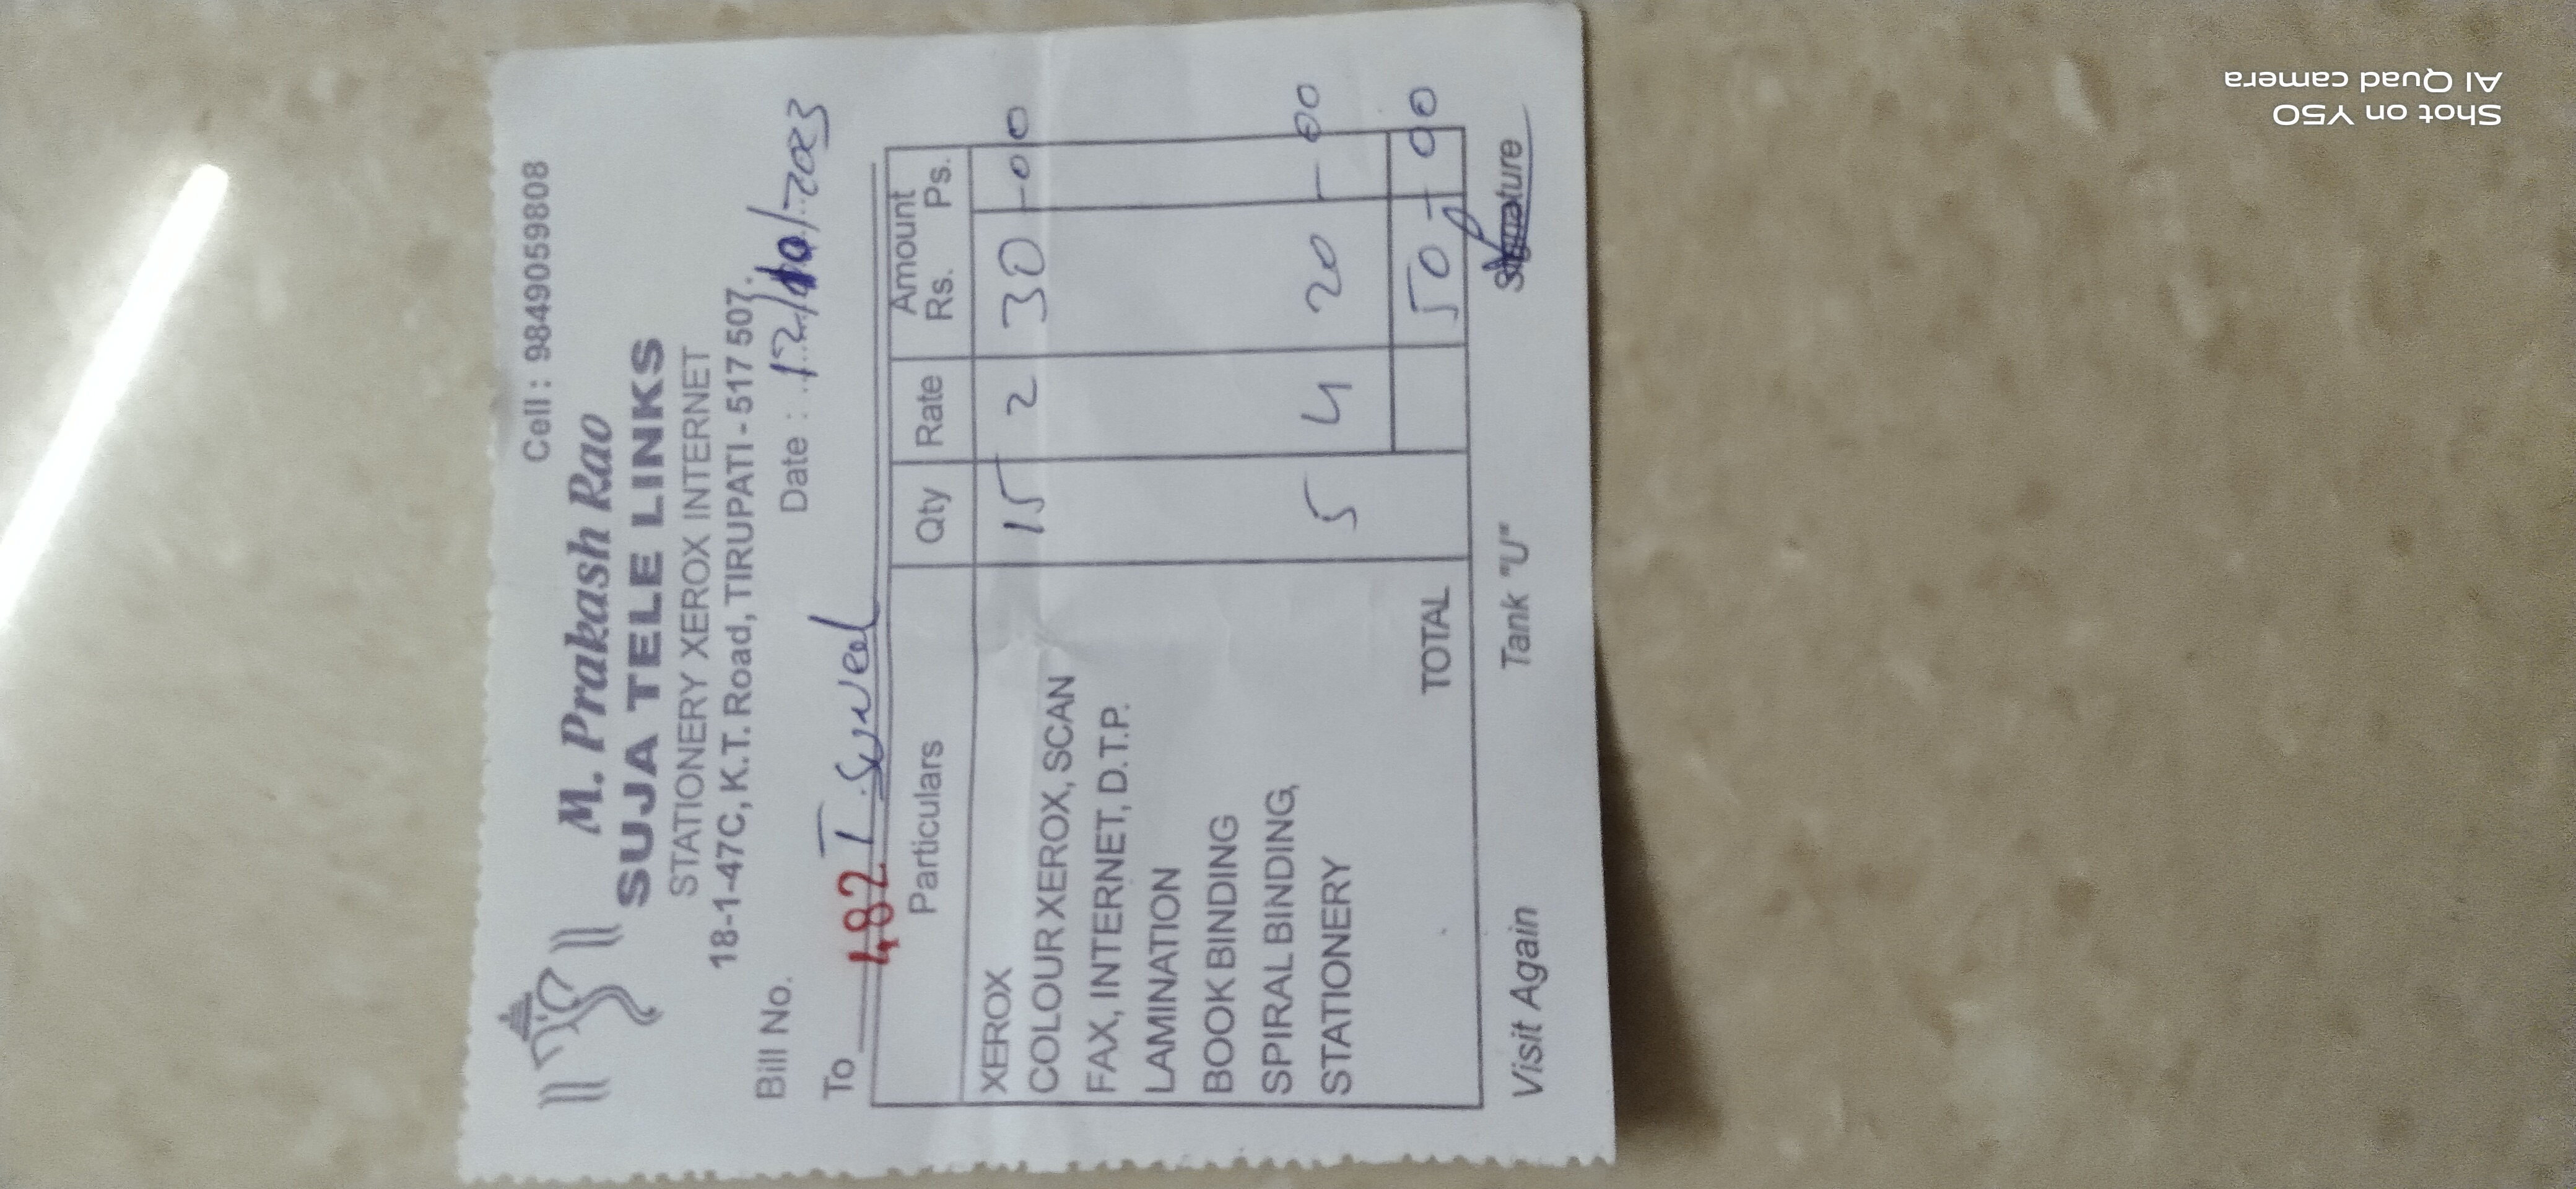 Cell : 9849059808
M. Prakash Rao
SUJA TELE LINKS
STATIONERY XEROX INTERNET
18-1-47C, K.T. Road, TIRUPATI - 517 507.
Bill No. 1,82 Date : 12/10/2023
To T.
Particulars Qty Rate Amount Rs. Ps.
XEROX
COLOUR XEROX, SCAN 15 2 30-00
FAX, INTERNET, D.T.P.
LAMINATION
BOOK BINDING
SPIRAL BINDING,
STATIONERY 5 4 20-00
TOTAL 50-00
Visit Again Tank "U" Signature
Shot on Y50
AI Quad camera